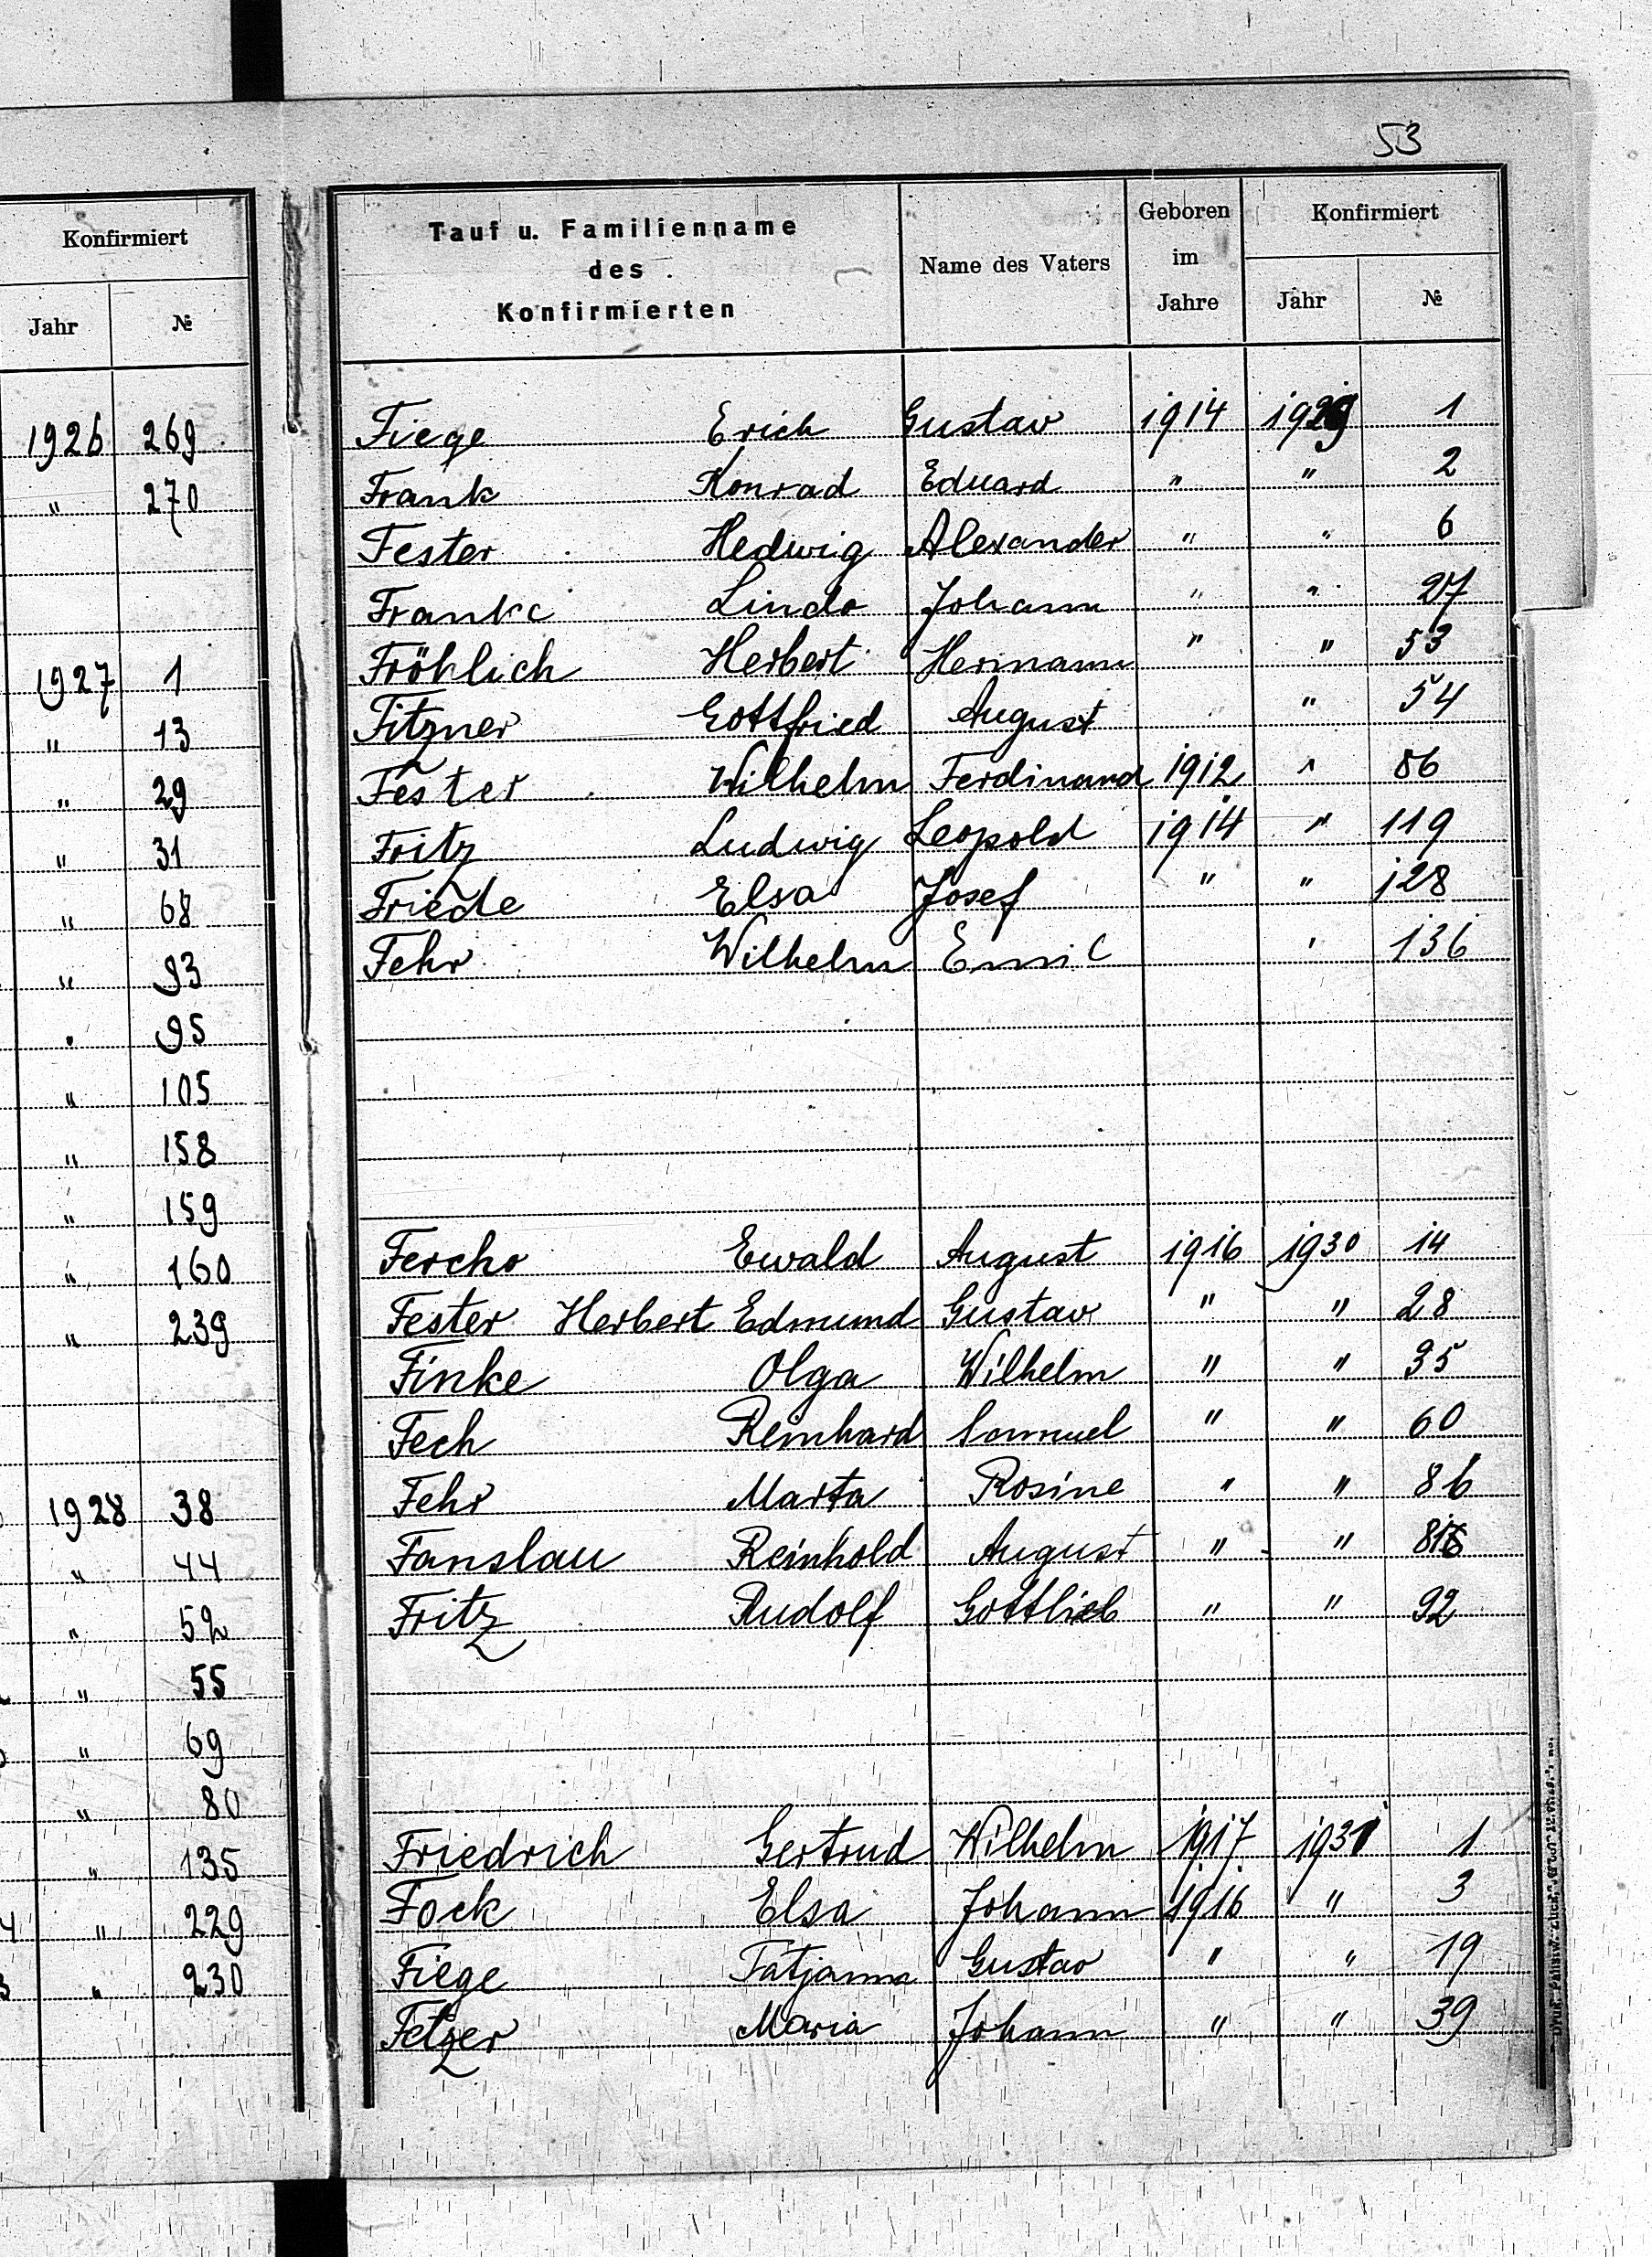 53
Konfirmiert
Jahr №
1926 269
" 270
1927 1
" 13
" 29
" 31
" 68
" 93
" 95
" 105
" 158
" 159
" 160
" 239
1928 38
" 44
" 52
" 55
" 69
" 80
" 135
" 229
" 230
Tauf u. Familienname des Konfirmierten
Name des Vaters
Geboren im Jahre
Konfirmiert
Jahr №
Fiege Erich Gustav 1914 1929 1
Frank Konrad Eduard " " 2
Fester Hedwig Alexander " " 6
Franke Linda Johann " " 27
Fröhlich Herbert Hermann " " 53
Fitzner Gottfried August " 54
Fester Wilhelm Ferdinand 1912 " 86
Fritz Ludwig Leopold 1914 " 119
Friede Elsa Josef " " 128
Fehr Wilhelm Emil " 136
Fercho Ewald August 1916 1930 14
Fester Herbert Edmund Gustav " " 28
Finke Olga Wilhelm " " 35
Fech Reinhard Samuel " " 60
Fehr Marta Rosine " " 86
Fanslau Reinhold August " "
Fritz Rudolf Gottlieb " " 92
Friedrich Gertrud Wilhelm 1917 1931 1
Fock Elsa Johann 1916 " 3
Fiege Tatjanna Gustav " " 19
Fetzer Maria Johann " " 39